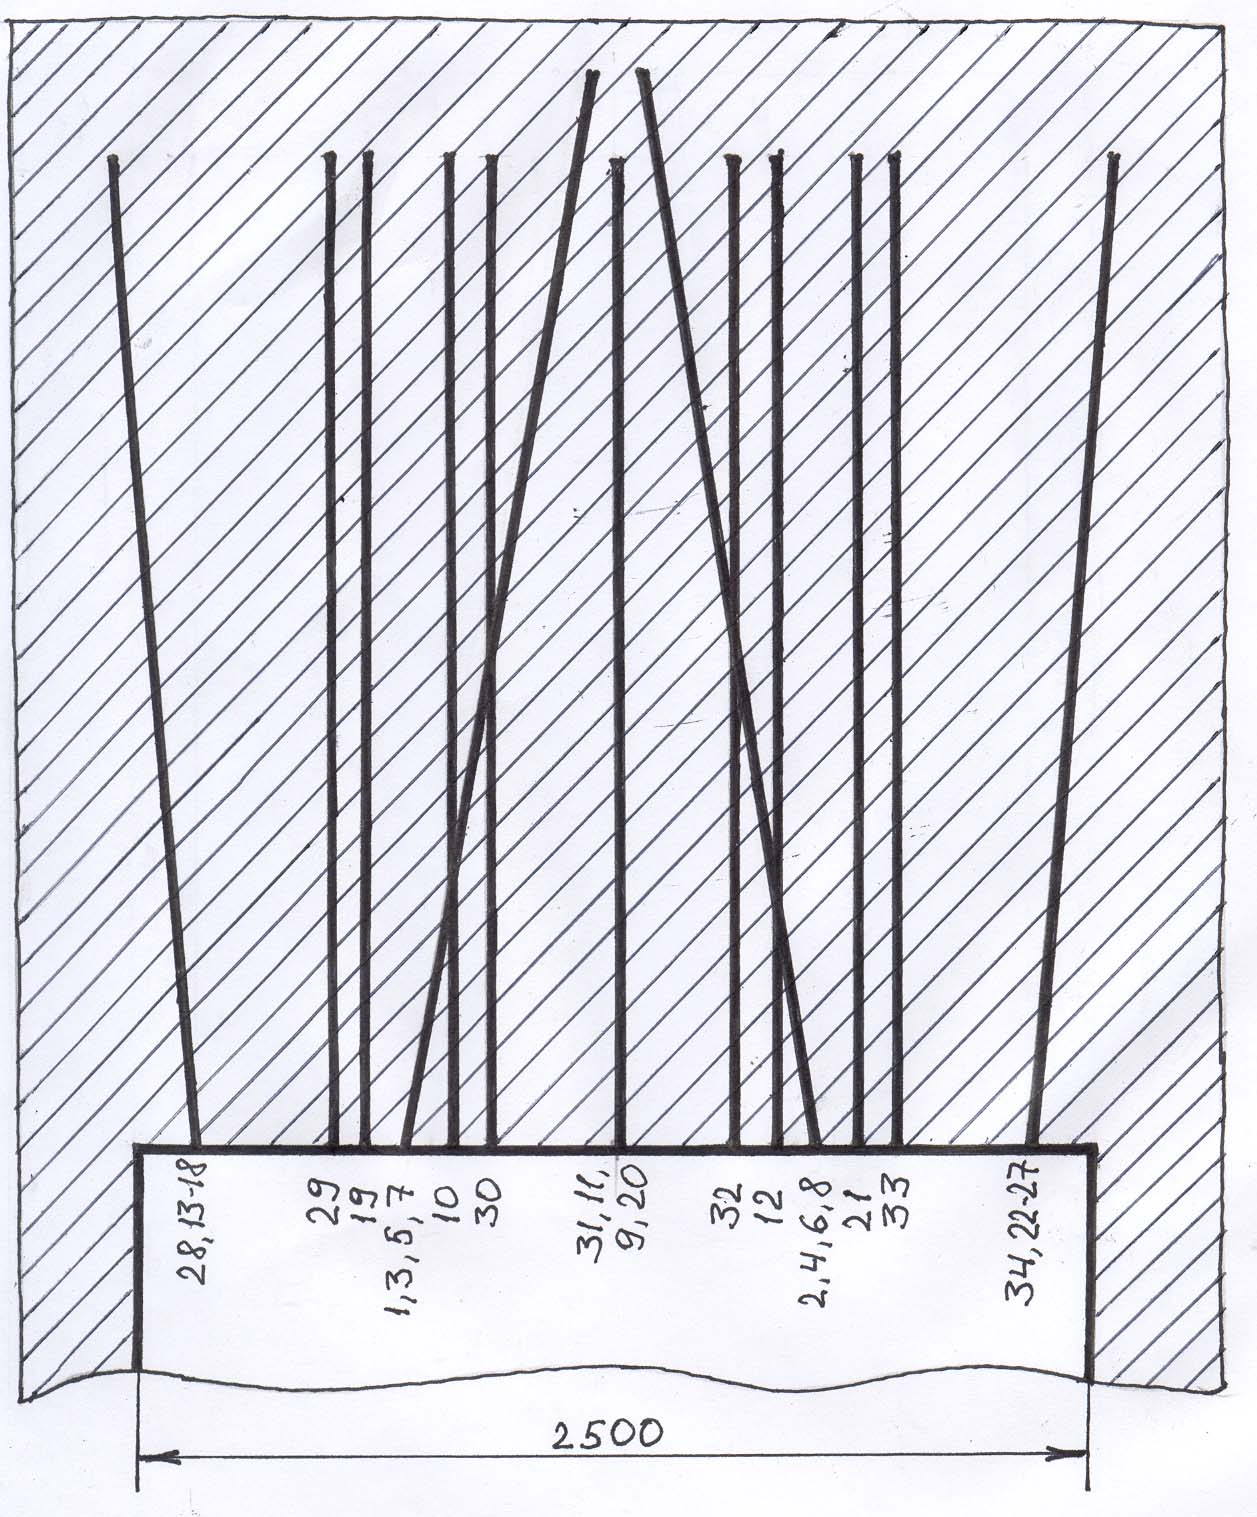 28,13-18
29
19
1,3,5,7
10
30
31,11,
9,20
32
12
2,4,6,8
21
33
34,22-27
2500